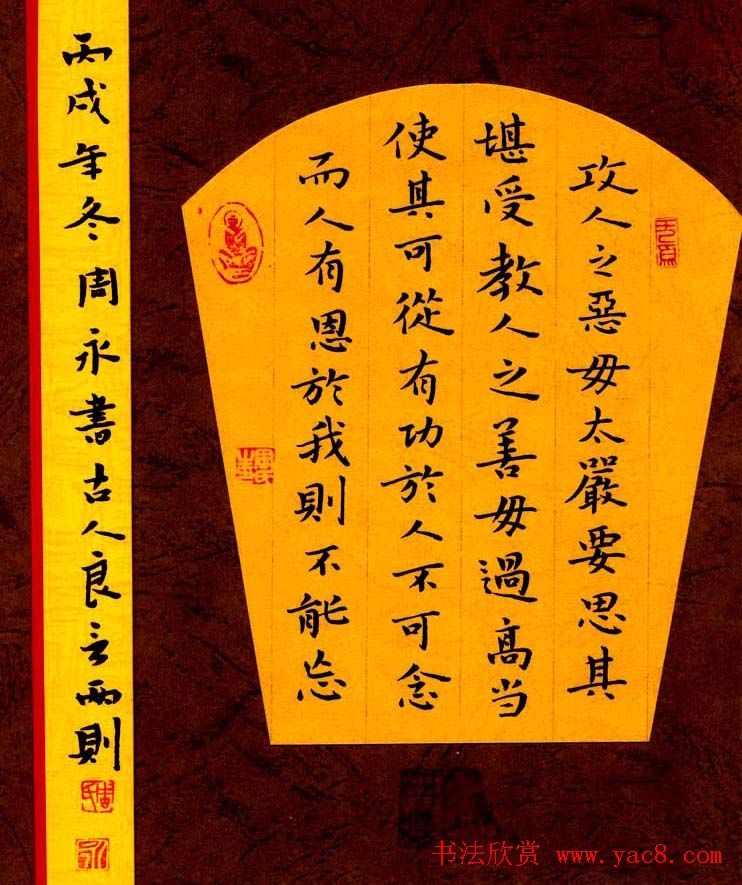 攻人之惡毋太嚴要思其
堪受教人之善毋過高当
使其可從有功於人不可念
而人有恩於我則不能忘
丙戌年冬周永書古人良言兩則
书法欣赏 www.yac8.com